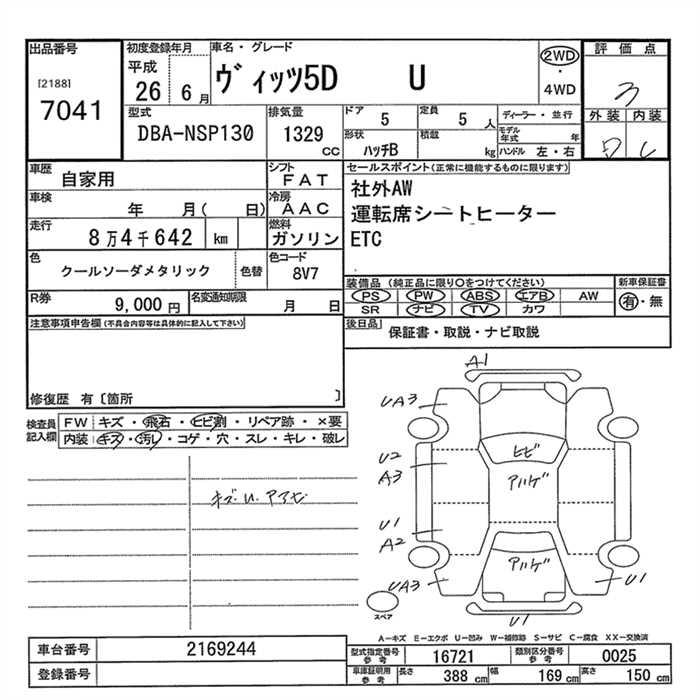 出品番号 初度登録年月 車名・グレード 2WD ・ 4WD 評価点
[2188] 7041 平成 26 6月 ヴィッツ5D U 3
外装 内装
型式 排気量 ドア 5 定員 5人 ディーラー・並行
DBA-NSP130 1329 cc 形状 ハッチB 積載 kg モデル年式 年
ハンドル 左・右
車歴 自家用 シフト FAT セールスポイント(正常に機能するものに限ります)
車検 年 月( 日) 冷房 AAC 社外AW
運転席シートヒーター
走行 8万4千642 km 燃料 ガソリン ETC
色 クールソーダメタリック 色替 色コード 8V7
装備品 (純正品に限り○をつけてください) 新車保証書
R券 9,000円 名変通知期限 月 日 PS PW ABS エアB AW 有・無
SR ナビ TV カワ
注意事項申告欄(不具合内容等は具体的に記入して下さい) 後日品 保証書・取説・ナビ取説
修復歴 有〔箇所 〕
検査員記入欄 FW キズ・飛石・ヒビ割・リペア跡・×要
内装 キズ・汚レ・コゲ・穴・スレ・キレ・破レ
A1
UA3
U2
A3
ヒビ
アハゲ
U1
A2
アハゲ
UA3
U1
スペア
U1
A-キズ E-エクボ U-凹み W-補修跡 S-サビ C-腐食 XX-交換済
車台番号 2169244 型式指定番号 参考 16721 類別区分番号 参考 0025
登録番号 車庫証明用 参考 長さ 388 cm 幅 169 cm 高さ 150 cm